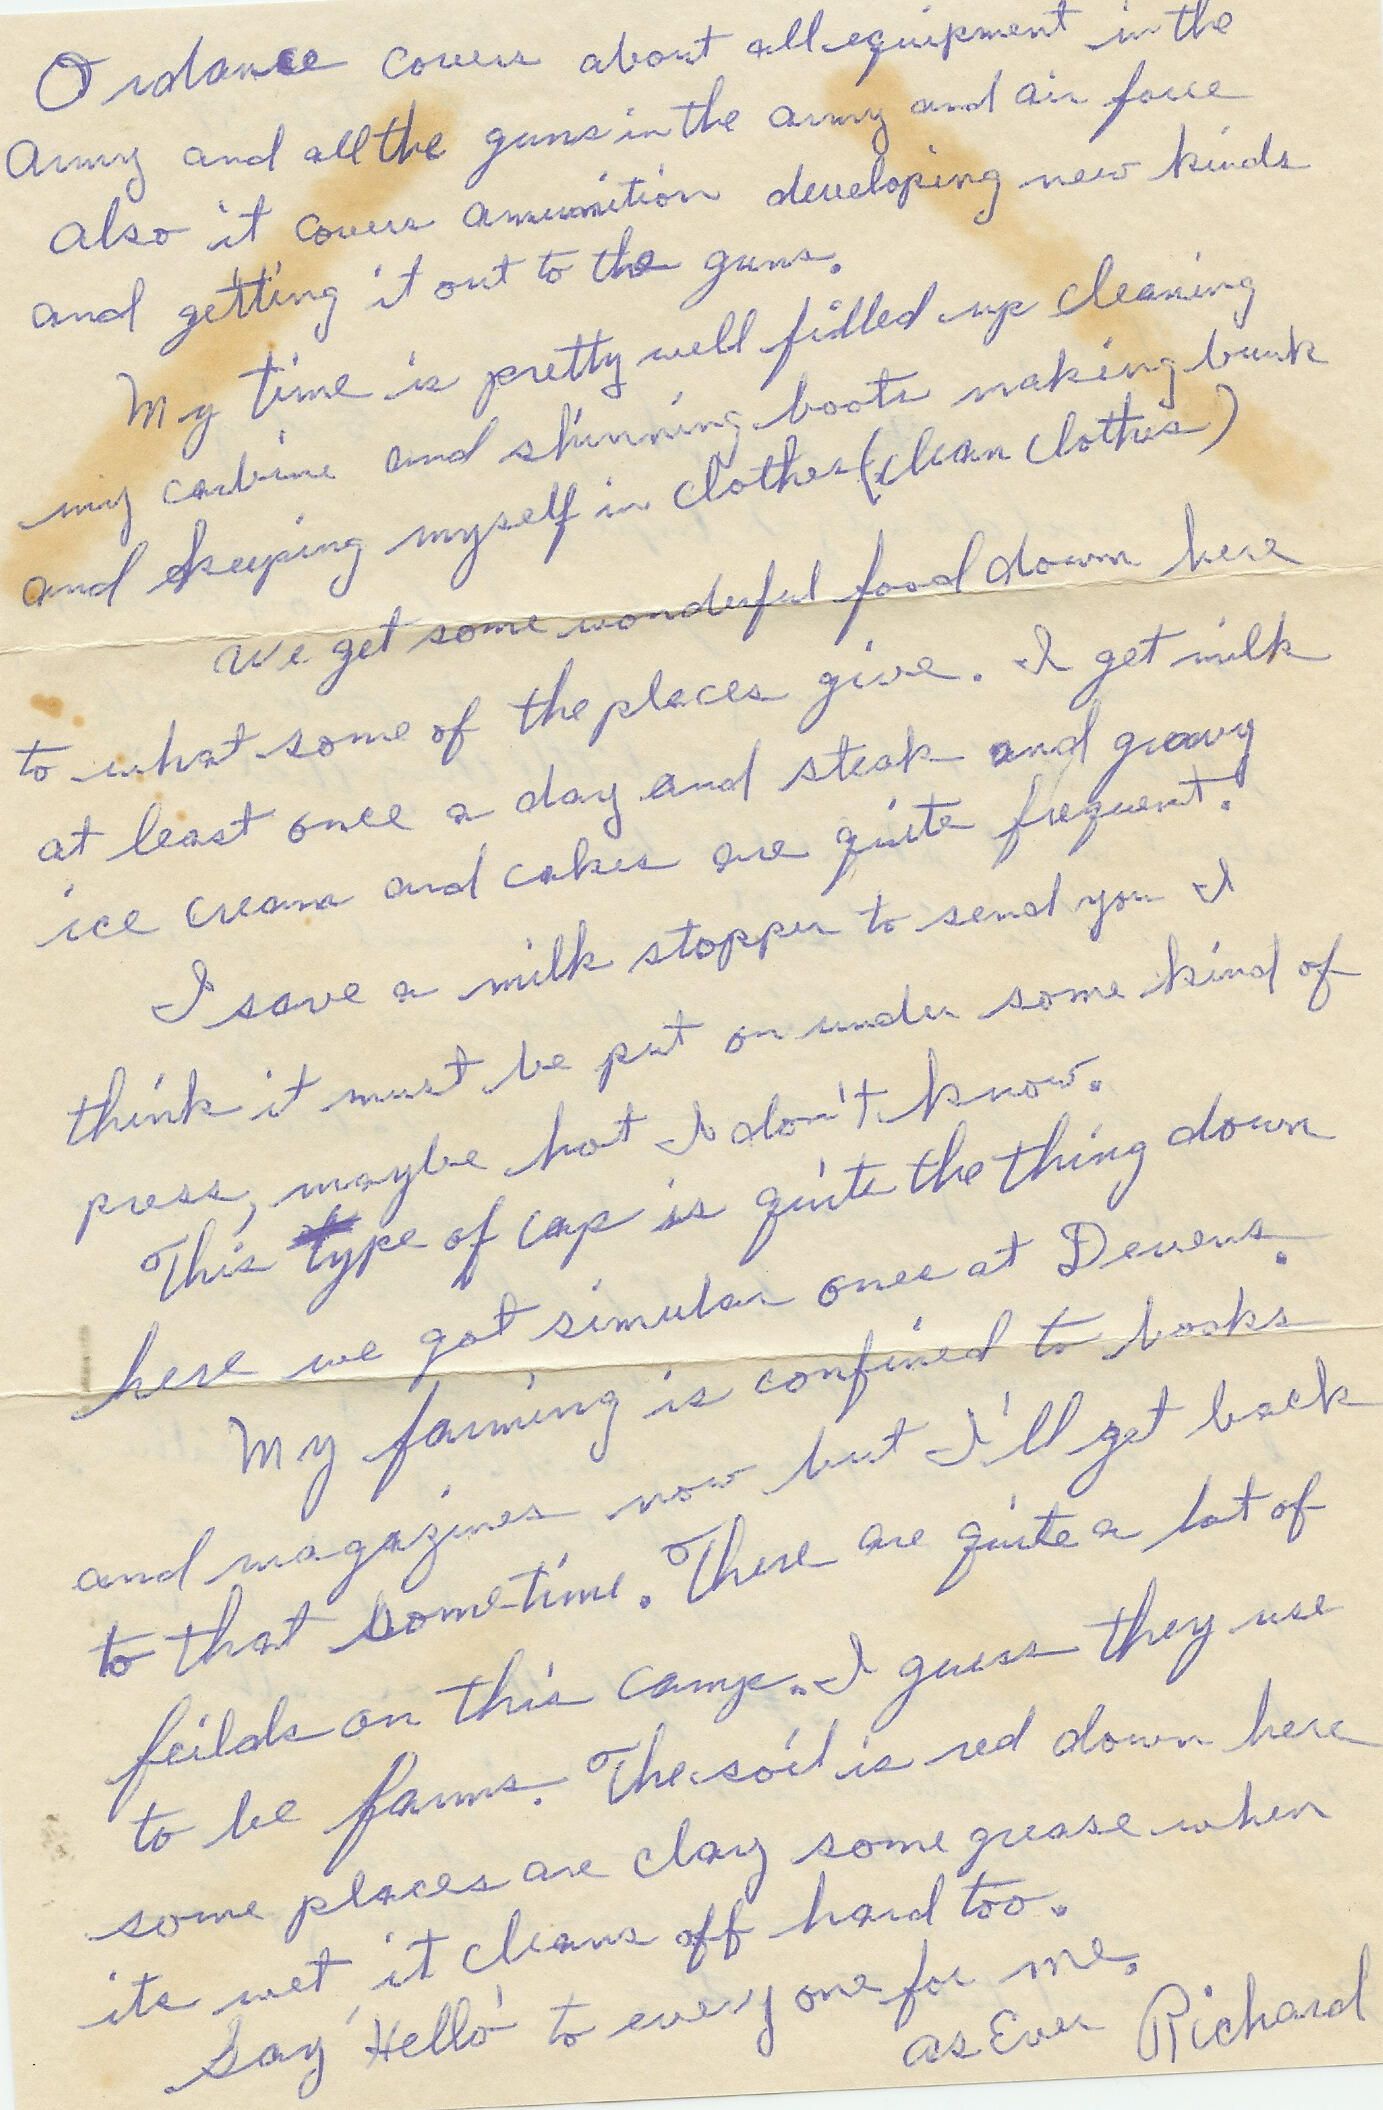 Ordance covers about all equipment in the
army and all the guns in the army and air force
also it covers amunition developing new kinds
and getting it out to the guns.
My time is pretty well filled up cleaning
my carbine and shinning boots making bunk
and keeping myself in clothes (clean clothes)
We get some wonderful food down here
to what some of the places give. I get milk
at least once a day and steak and gravy
ice cream and cakes are quite frequent.
I save a milk stopper to send you I
think it must be put on under some kind of
press, maybe hot I don't know.
This type of cap is quite the thing down
here we got simular ones at Devens.
My farming is confined to books
and magazines now but I'll get back
to that sometime. There are quite a lot of
feilds on this camp. I guess they use
to be farms. The soil is red down here
some places are clay some grease when
its wet, it cleans off hard too.
Say 'Hello' to every one for me.
as Ever Richard